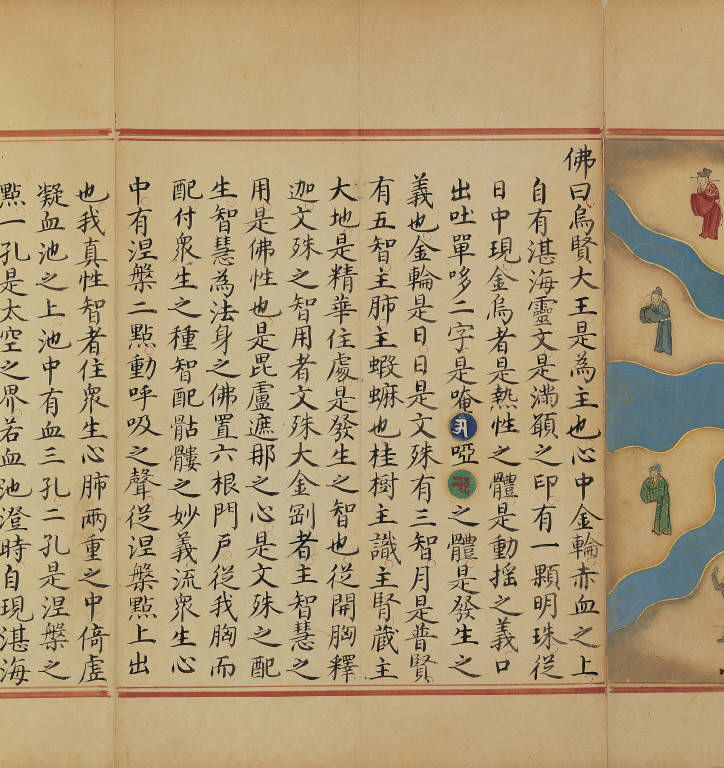 佛曰烏賢大王是為主也心中金輪赤血之上
自有湛海靈文是滿顖之印有一顆明珠從
日中現金烏者是熱性之體是動搖之義口
出吐單哆二字是唵啞之體是發生之
義也金輪是日日是文殊有三智月是普賢
有五智主肺主蝦蟆也桂樹主識主腎藏主
大地是精華住處是發生之智也從開胸釋
迦文殊之智用者文殊大金剛者主智慧之
用是佛性也是毘盧遮那之心是文殊之配
生智慧為法身之佛置六根門戶從我胸而
配付衆生之種智配骷髏之妙義流衆生心
中有涅槃二點動呼吸之聲從涅槃點上出
也我真性智者住衆生心肺兩重之中倚虛
凝血池之上池中有血三孔二孔是涅槃之
點一孔是太空之界若血池澄時自現湛海